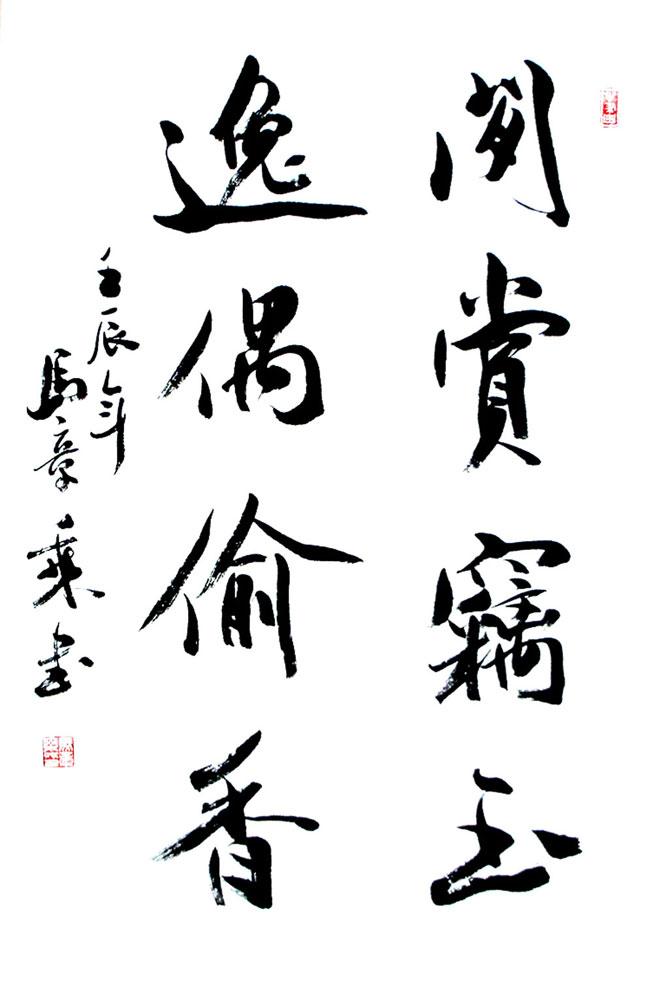 閒賞竊玉
逸偶偷香
壬辰年
馬章乘書